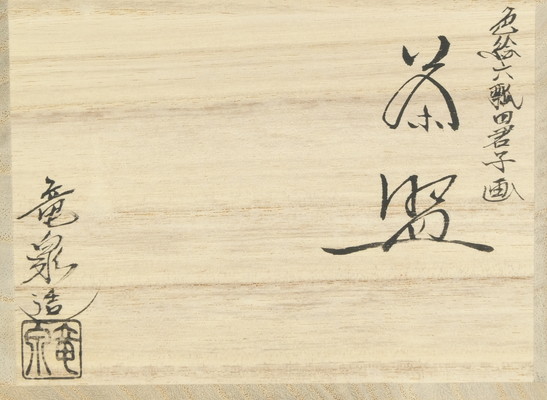 色絵六瓢四君子画
茶盌
竜泉造
竜泉